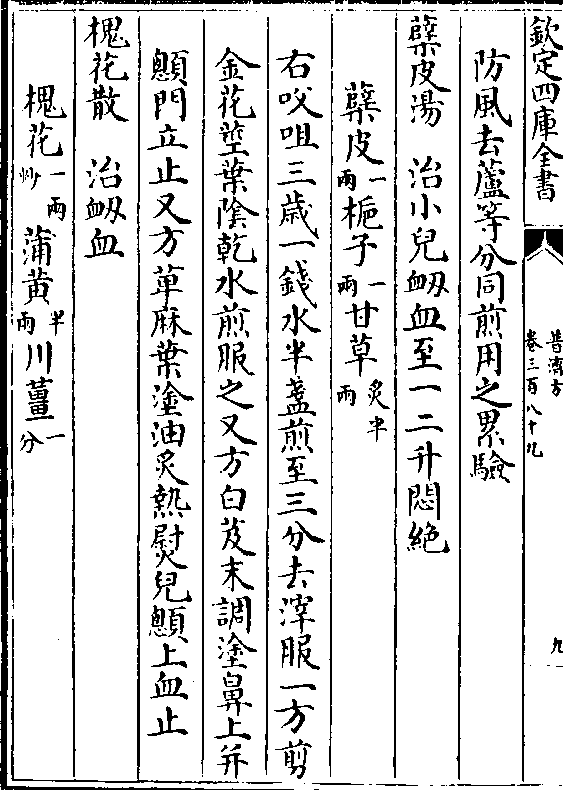 欽定四庫全書
普濟方
卷三百八十九
九
防風去蘆等分同煎用之累驗
蘗皮湯 治小兒衂血至一二升悶絶
蘗皮一兩梔子一兩甘草炙半兩
右㕮咀三歳一錢水半盞煎至三分去滓服一方剪
金花莖葉隂乾水煎服之又方白芨末調塗鼻上并
顖門立止又方萆麻葉塗油炙熱熨兒顖上血止
槐花散 治衂血
槐花一兩炒蒲黄半兩川薑一分